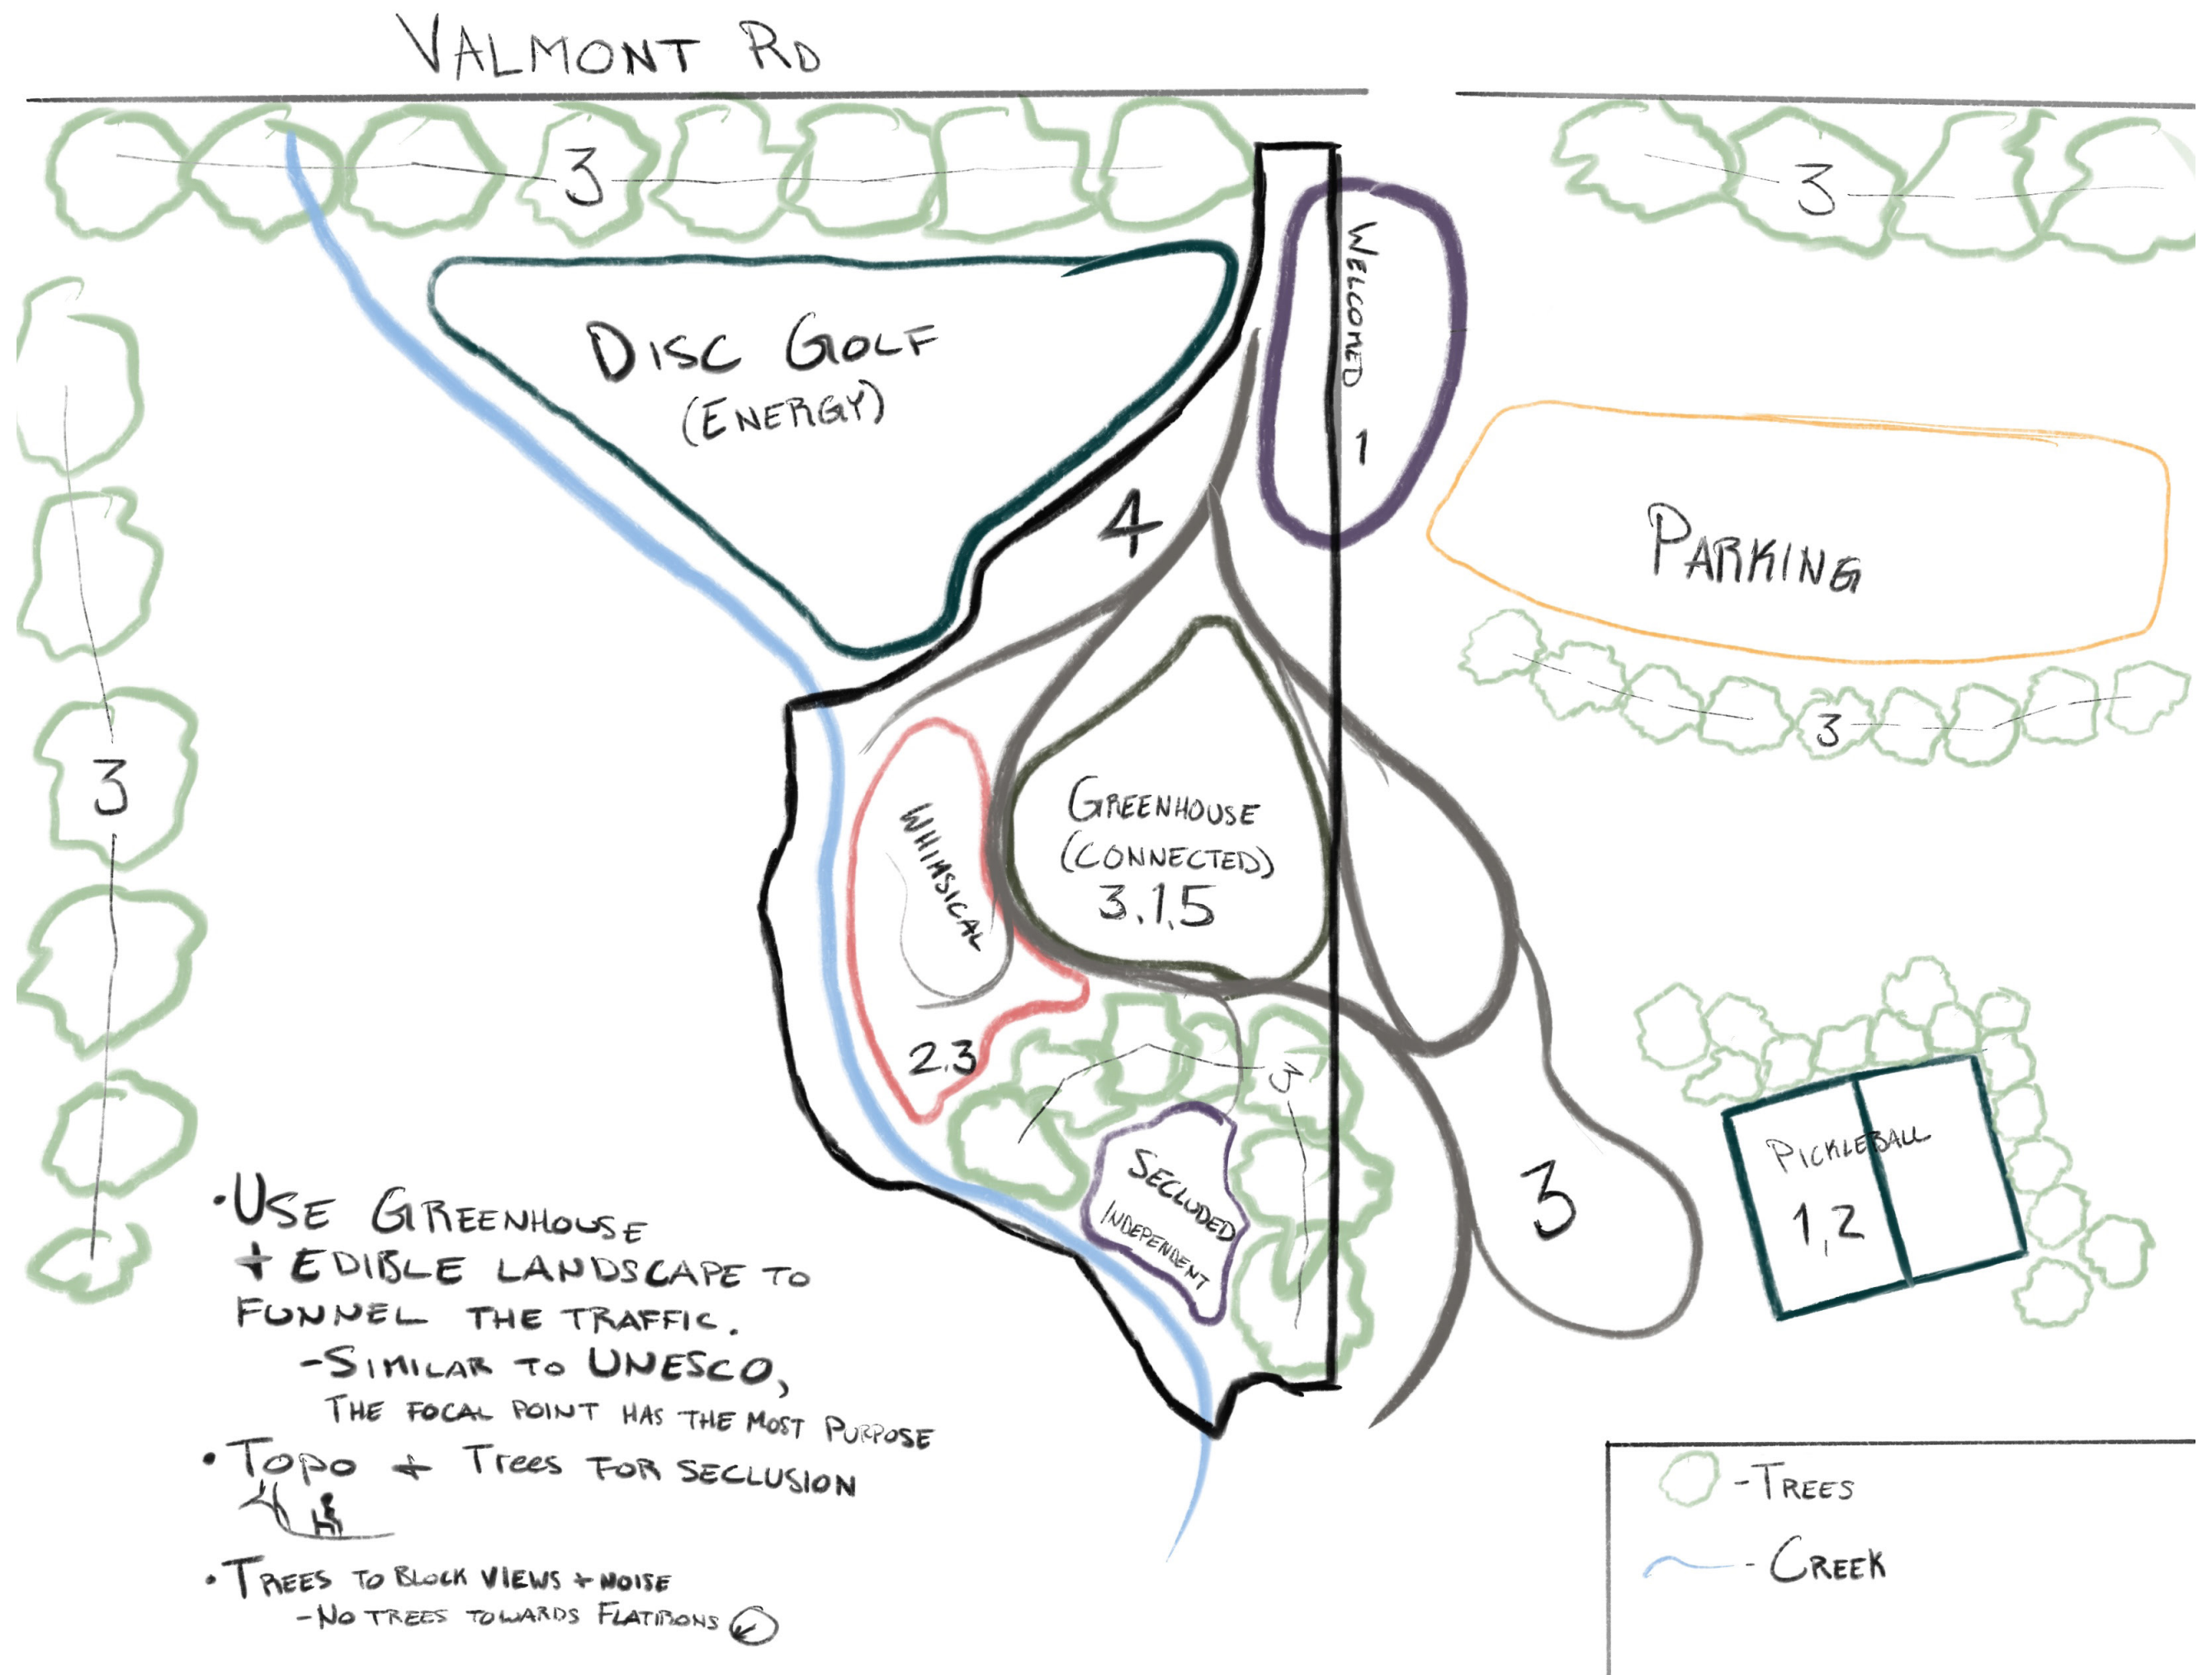 VALMONT RD
3
3
DISC GOLF
(ENERGY)
WELCOMED
1
4
PARKING
3
3
WHIMSICAL
2.3
GREENHOUSE
(CONNECTED)
3.1,5
3
SECLUDED
INDEPENDENT
3
PICKLEBALL
1,2
• USE GREENHOUSE
+ EDIBLE LANDSCAPE TO
FUNNEL THE TRAFFIC.
- SIMILAR TO UNESCO,
THE FOCAL POINT HAS THE MOST PURPOSE
• TOPO + Trees FOR SECLUSION
• TREES TO BLOCK VIEWS + NOISE
- NO TREES TOWARDS FLATIRONS
- TREES
- CREEK